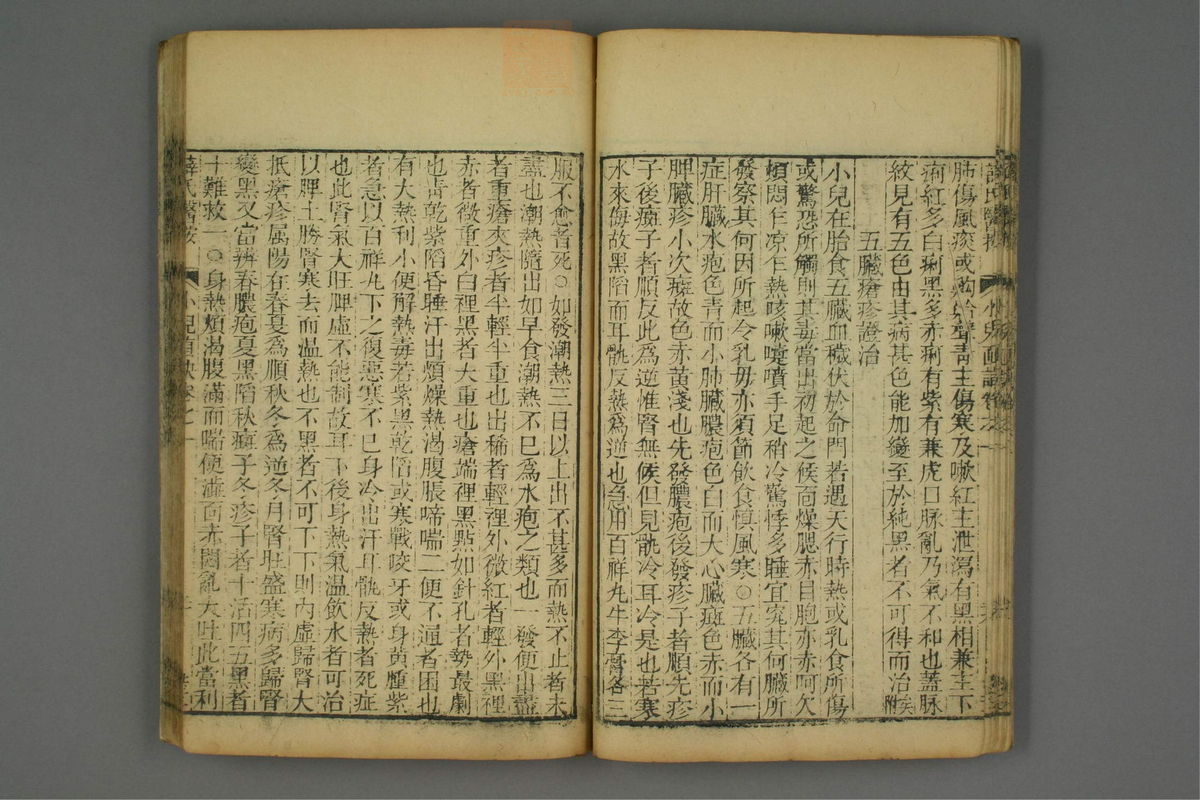 薛氏醫按 小兒直訣卷之一
肺傷風痰或蛤聲青主傷寒及嗽紅主泄瀉有黑相兼主下
痢紅多白痢黑多赤痢有紫有兼虎口脉亂乃氣不和也蓋脉
紋見有五色由其病甚色能加變至於純黑者不可得而治矣
五臟瘡疹證治
小兒在胎食五臟血穢伏於命門若遇天行時熱或乳食所傷
或驚恐所觸則其毒當出初起之候面燥腮赤目胞亦赤呵欠
煩悶乍凉乍熱咳嗽嚏噴手足稍冷驚悸多睡宜究其何臟所
發察其何因所起令乳母亦須節飲食慎風寒○五臟各有一
症肝臟水疱色青而小肺臟膿疱色白而大心臟斑色赤而小
脾臟疹小次斑故色赤黃淺也先發膿疱後發疹子者順先疹
子後斑子者順反此爲逆惟腎無候但見骩冷耳冷是也若寒
水來侮故黑陷而耳骩反熱爲逆也急用百祥丸牛李膏各三
服不愈者死○如發潮熱三日以上出不甚多而熱不止者未
盡也潮熱隨出如早食潮熱不已爲水疱之類也一發便出盡
者重瘡夾疹者半輕半重也出稀者輕裡外微紅者輕外黑裡
赤者微重外白裡黑者大重也瘡端裡黑點如針孔者勢最劇
也靑乾紫陷昏睡汗出煩燥熱渴腹脹啼喘二便不通者困也
有大熱利小便解熱毒若紫黑乾陷或寒戰咬牙或身黃腫紫
者急以百祥丸下之復惡寒不已身冷出汗耳骩反熱者死症
也此腎氣大旺脾虛不能制故耳下後身熱氣温飲水者可治
以脾土勝腎寒去而温熱也不黑者不可下下則內虛歸腎大
抵瘡疹属陽在春夏爲順秋冬爲逆冬月腎旺盛寒病多歸腎
變黑又當辨春膿疱夏黑陷秋斑子冬疹子者十活四五黑者
十難救一○身熱煩渴腹滿而喘便澁面赤悶亂大吐此當利
薛氏醫按 小兒直訣卷之一